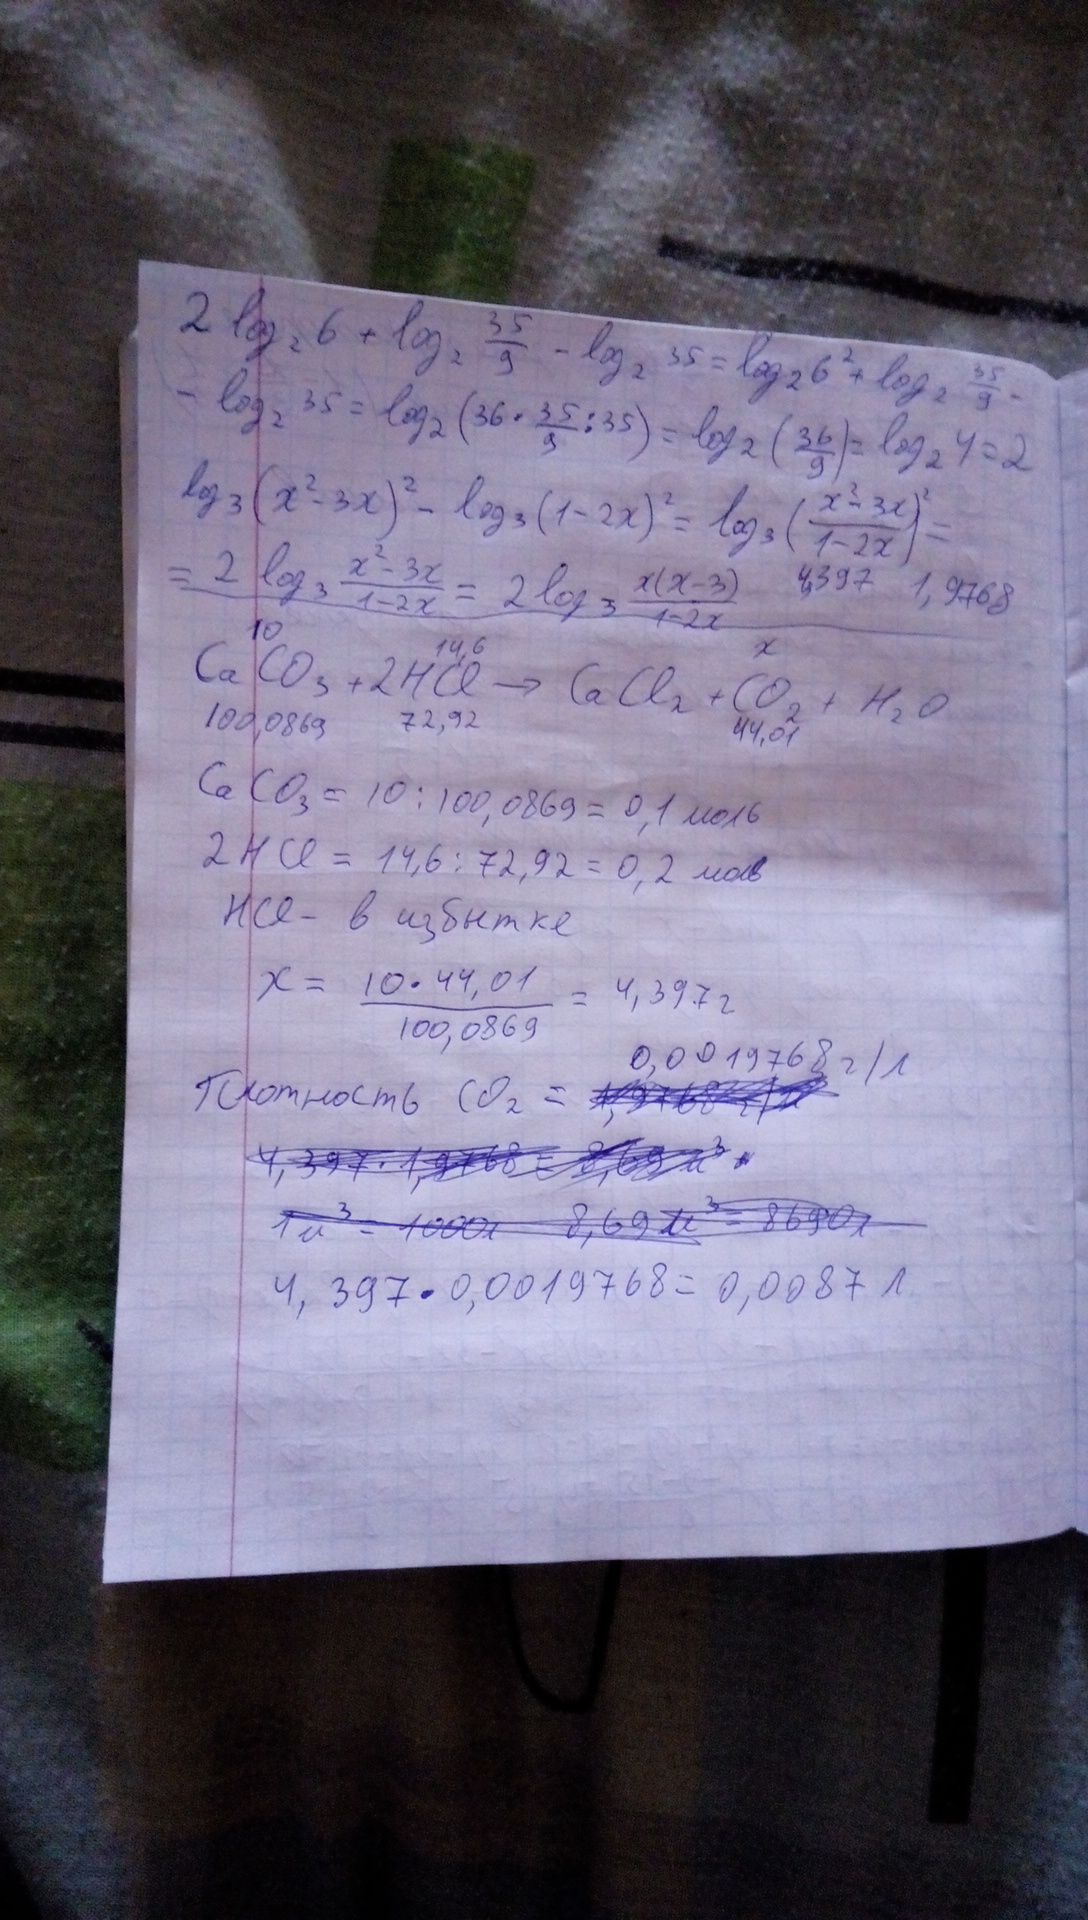 2 log₂ 6 + log₂ 35/9 - log₂ 35 = log₂ 6² + log₂ 35/9 -
- log₂ 35 = log₂ (36 · 35/9 : 35) = log₂ (36/9) = log₂ 4 = 2
log₃ (x² - 3x)² - log₃ (1 - 2x)² = log₃ (x² - 3x / 1 - 2x)² =
= 2 log₃ x² - 3x / 1 - 2x = 2 log₃ x(x - 3) / 1 - 2x 4,397 1,9768
10 14,6 x
CaCO₃ + 2HCl → CaCl₂ + CO₂ + H₂O
100,0869 72,92 44,01
CaCO₃ = 10 : 100,0869 = 0,1 моль
2HCl = 14,6 : 72,92 = 0,2 моль
HCl - в избытке
x = 10 · 44,01 / 100,0869 = 4,397 г
0,0019768 г/л
Плотность CO₂ = 1,9768 г/л
4,397 · 1,9768 = 8,69 м³
1 м³ = 1000 л 8,69 м³ = 8690 л
4,397 · 0,0019768 = 0,0087 л